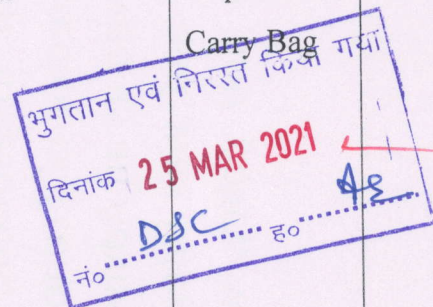 Carry Bag
भुगतान एवं निररत किया गया
दिनांक 25 MAR 2021
नं० DSC ह०